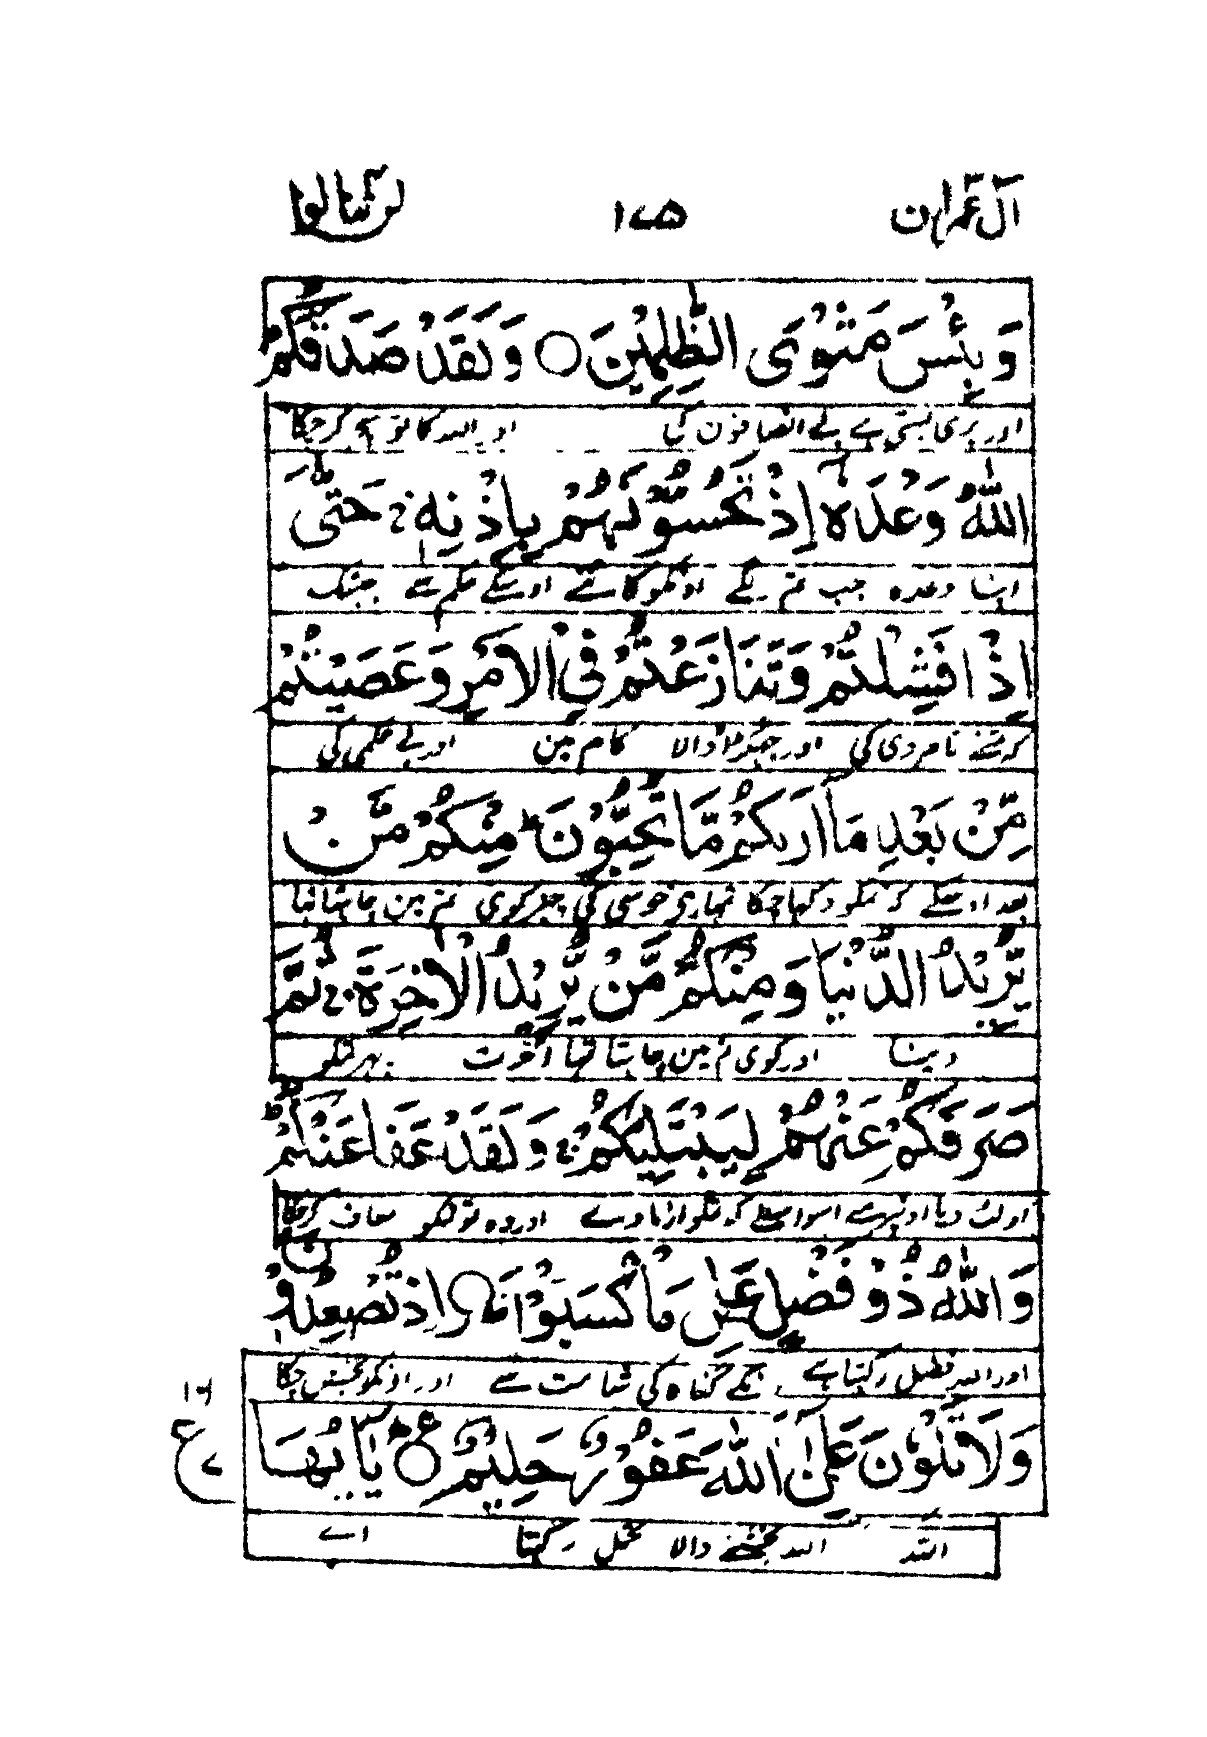 آل عمران ۱۷۵ لن تنالوا
وَبِئْسَ مَثْوَى الظّٰلِمِيْنَ ○ وَلَقَدْ صَدَقَكُمُ
اور بری بستی ہے بے انصافون کی اور اللہ کا تو سچ کر چکا
اللّٰهُ وَعْدَهٗ اِذْ تَحُسُّوْنَهُمْ بِاِذْنِهٖ حَتّٰٓى
اپنا وعدہ جب تم لگے اونکو کاٹنے اوسکے حکم سے جبتک
اِذَا فَشِلْتُمْ وَتَنَازَعْتُمْ فِي الْاَمْرِ وَعَصَيْتُمْ
کہ تمنے نامردی کی اور جھگڑا ڈالا کام مین اور بے حکمی کی
مِّنْ بَعْدِ مَآ اَرٰىكُمْ مَّا تُحِبُّوْنَ ط مِنْكُمْ مَّنْ
بعد اوسکے کہ تمکو دکھا چکا تمہاری خوشی کی چیز کوی تم مین چاہتا تھا
يُّرِيْدُ الدُّنْيَا وَمِنْكُمْ مَّنْ يُّرِيْدُ الْاٰخِرَةَ ج ثُمَّ
دنیا اور کوی تم مین چاہتا تھا آخرت پھر تمکو
صَرَفَكُمْ عَنْهُمْ لِيَبْتَلِيَكُمْ ج وَلَقَدْ عَفَا عَنْكُمْ ط
اولٹ دیا اونپر سے اسواسطے کہ تمکو ازماوے اور وہ تو تمکو معاف کر چکا
وَاللّٰهُ ذُوْ فَضْلٍ عَلٰى مَا كَسَبُوْا ○ اِذْ تُصْعِدُوْنَ
اور اللہ فضل رکھتا ہے کچھ گناہ کی شامت سے اور اونکو بخش چکا
وَلَا تَلْوٗنَ عَلٰٓى اللّٰهَ غَفُوْرٌ حَلِيْمٌ ○ ع يٰٓاَيُّهَا
اللہ اللہ بخشنے والا تحمل رکھتا اے
۱۶
ع
۷